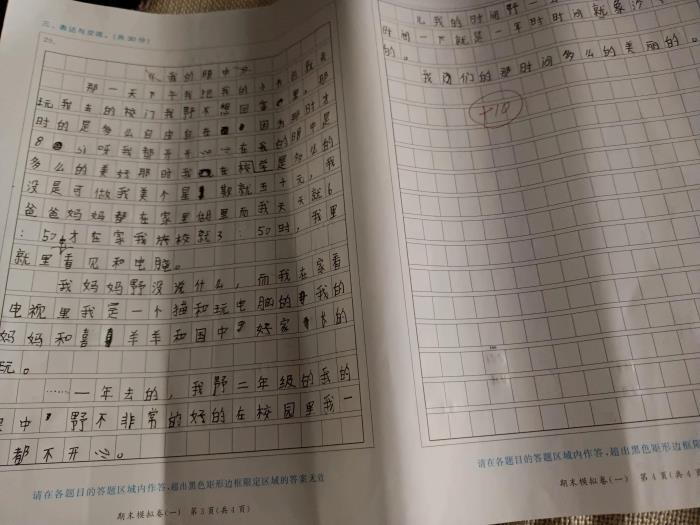 三、表达与交流。(共30分)
29.
我的眼中
那一天下午我把我的
玩我去的校门我野不想回家里。那
时的是多么自由自在 因为那时才
8 岁呀我都开开心心在我的眼中是
多么的美好那时我在校学是多么的
没是可做我美个星期就五十元,我
爸爸妈妈都在家里但里而我天天就6
:50才在家我放校就3:50时,我里
就里看见和电脑。
我妈妈野没没什么,而我在家看
电视里我是一个捶和玩电脑的 我的
妈妈和喜 羊羊和国中 好家 的
玩。
……一年去的,我野二年级的我的
中,野不非常的好的在校园里我一
都不开心。
请在各题目的答题区域内作答,超出黑色矩形边框限定区域的答案无效
期末模拟卷(一) 第3页(共4页)
儿我的时间野一
时间一下就是一年时时间就象
的。
我们的那时间多么的美丽的。
+18
请在各题目的答题区域内作答,超出黑色矩形边框限
期末模拟卷(一) 第4页(共4页